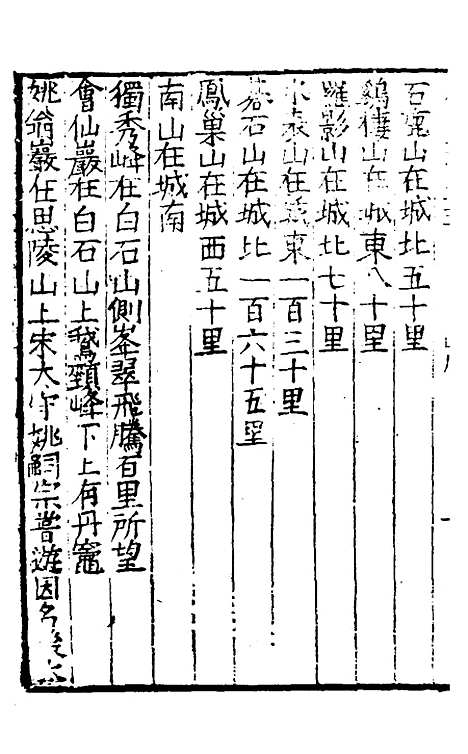 石鹿山在城北五十里
鷄棲山在城東八十里
羅影山在城北七十里
山在東一百三十里
石山在城北一百六十五里
鳳巢山在城西五十里
南山在城南
獨秀峰在白石山側峯翠飛騰百里所望
會仙巖在白石山上鵞頸峰下上有丹竈
姚翁巖在思陵山上宋太守姚嗣宗嘗遊因名